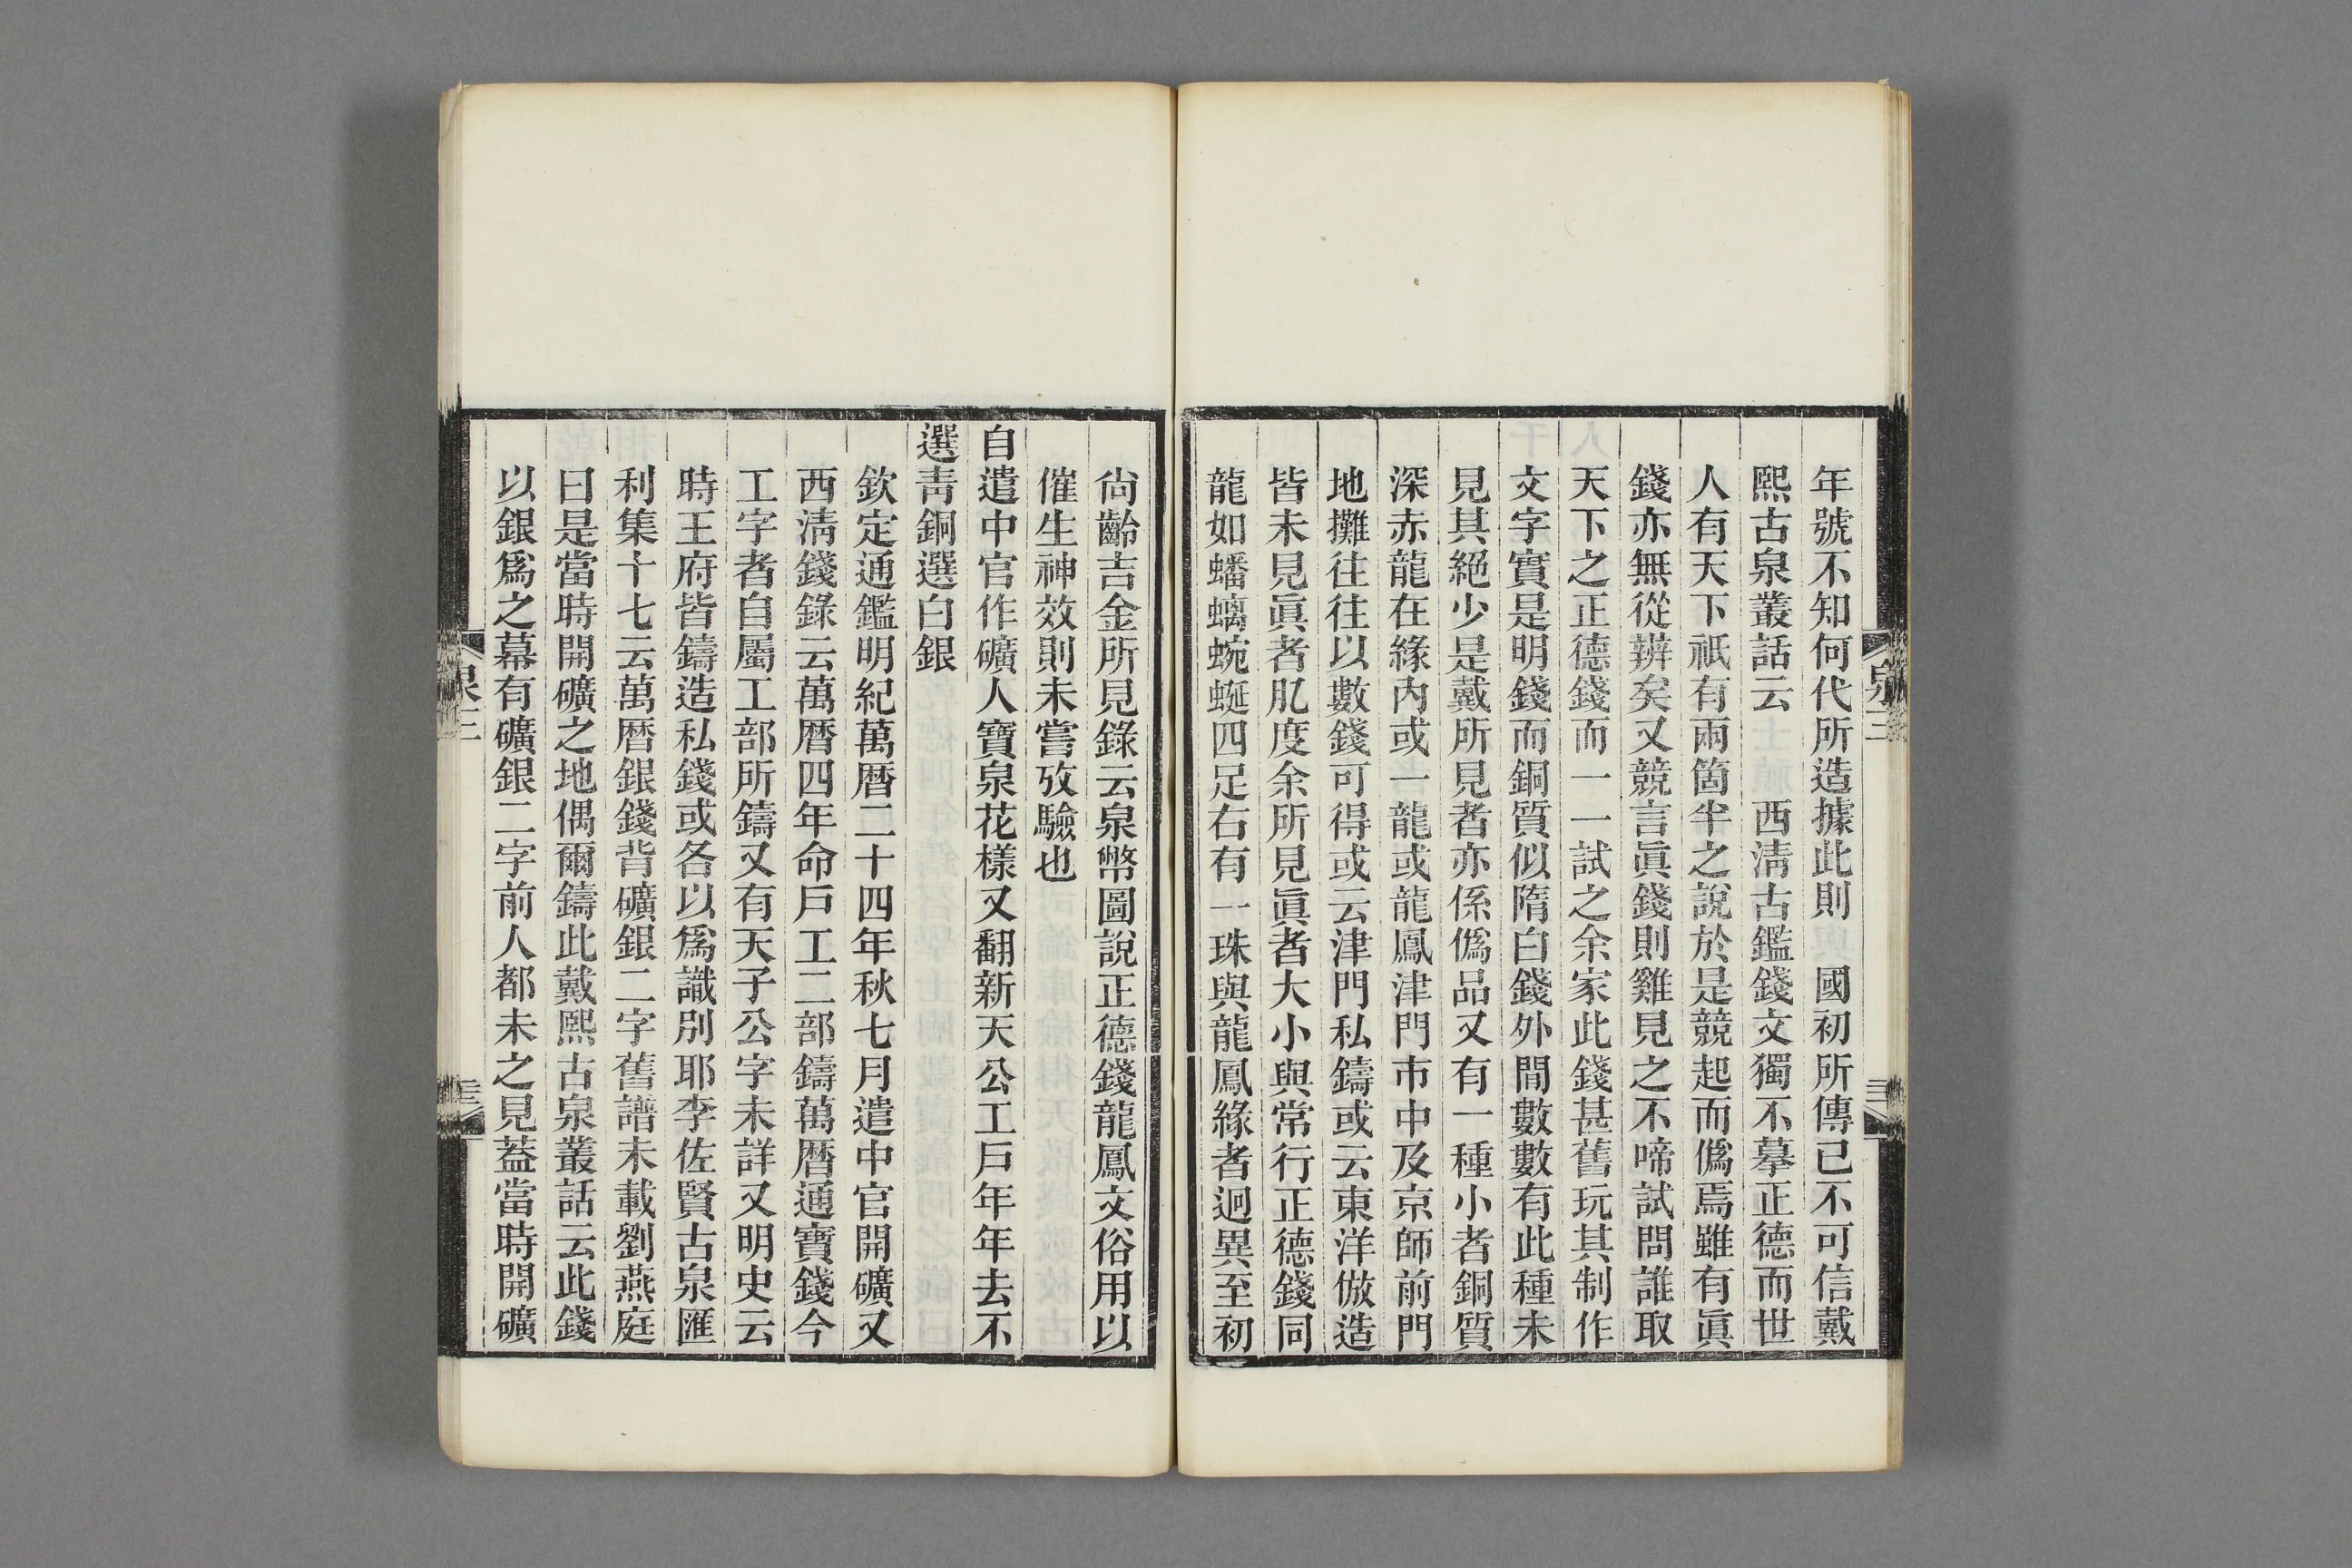 年號不知何代所造據此則　國初所傳已不可信戴
熙古泉叢話云　　西淸古鑑錢文獨不摹正德而世
人有天下祇有兩箇半之說於是競起而僞焉雖有眞
錢亦無從辨矣又競言眞錢則雞見之不啼試問誰取
天下之正德錢而一一試之余家此錢甚舊玩其制作
文字實是明錢而銅質似隋白錢外間數數有此種未
見其絕少是戴所見者亦係僞品又有一種小者銅質
深赤龍在緣內或一龍或龍鳳津門市中及京師前門
地攤往往以數錢可得或云津門私鑄或云東洋倣造
皆未見眞者肊度余所見眞者大小與常行正德錢同
龍如蟠螭蜿蜒四足右有一珠與龍鳳緣者迥異至初
尙齡吉金所見錄云泉幣圖說正德錢龍鳳文俗用以
催生神效則未嘗攷驗也
自遣中官作礦人寶泉花樣又翻新天公工戶年年去不
選靑銅選白銀
欽定通鑑明紀萬曆二十四年秋七月遣中官開礦又
西淸錢錄云萬曆四年命戶工二部鑄萬曆通寶錢今
工字者自屬工部所鑄又有天子公字未詳又明史云
時王府皆鑄造私錢或各以爲識別耶李佐賢古泉匯
利集十七云萬曆銀錢背礦銀二字舊譜未載劉燕庭
曰是當時開礦之地偶爾鑄此戴熙古泉叢話云此錢
以銀爲之幕有礦銀二字前人都未之見蓋當時開礦
泉三